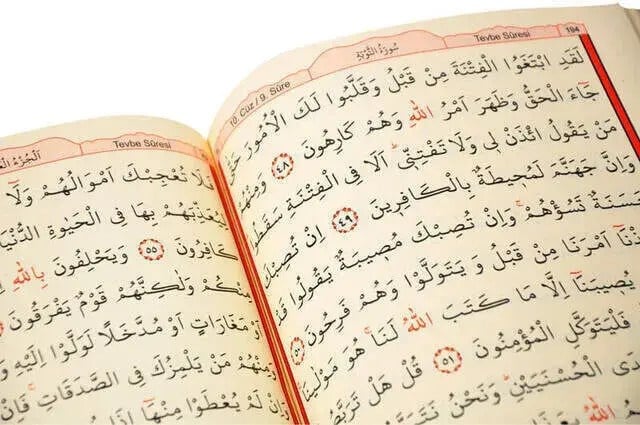 10. Cüz / 9. Sûre سُورَةُ التَّوْبَةِ Tevbe Sûresi 194
لَقَدِ ابْتَغَوُا الْفِتْنَةَ مِنْ قَبْلُ وَقَلَّبُوا لَكَ الْاُمُورَ
جَٓاءَ الْحَقُّ وَظَهَرَ اَمْرُ اللّٰهِ وَهُمْ كَارِهُونَ ﴿٤٨﴾ وَمِنْهُمْ
مَنْ يَقُولُ ائْذَنْ لٖى وَلَا تَفْتِنّٖى اَلَا فِى الْفِتْنَةِ سَقَطُوا
وَاِنَّ جَهَنَّمَ لَمُحٖيطَةٌ بِالْكَافِرٖينَ ﴿٤٩﴾ اِنْ تُصِبْكَ
حَسَنَةٌ تَسُؤْهُمْ وَاِنْ تُصِبْكَ مُصٖيبَةٌ يَقُولُوا
اَمْرَنَا مِنْ قَبْلُ وَيَتَوَلَّوْا وَهُمْ فَرِحُونَ ﴿٥٠﴾
يُصٖيبَنَٓا اِلَّا مَا كَتَبَ اللّٰهُ لَنَا هُوَ مَوْلٰينَا
فَلْيَتَوَكَّلِ الْمُؤْمِنُونَ ﴿٥١﴾ قُلْ هَلْ
الْحُسْنَيَيْنِ وَنَحْنُ
اللّٰهُ
Tevbe Sûresi اَلْجُزْءُ
فَلَا تُعْجِبْكَ اَمْوَالُهُمْ وَلَٓا
لِيُعَذِّبَهُمْ بِهَا فِى الْحَيٰوةِ الدُّنْيَا
كَافِرُونَ ﴿٥٥﴾ وَيَحْلِفُونَ بِاللّٰهِ
مِنْكُمْ وَلٰكِنَّهُمْ قَوْمٌ يَفْرَقُونَ
اَوْ مَغَارَاتٍ اَوْ مُدَّخَلًا لَوَلَّوْا اِلَيْهِ
وَمِنْهُمْ مَنْ يَلْمِزُكَ فِى الصَّدَقَاتِ فَاِنْ
وَاِنْ لَمْ يُعْطَوْا مِنْهَٓا اِذَا